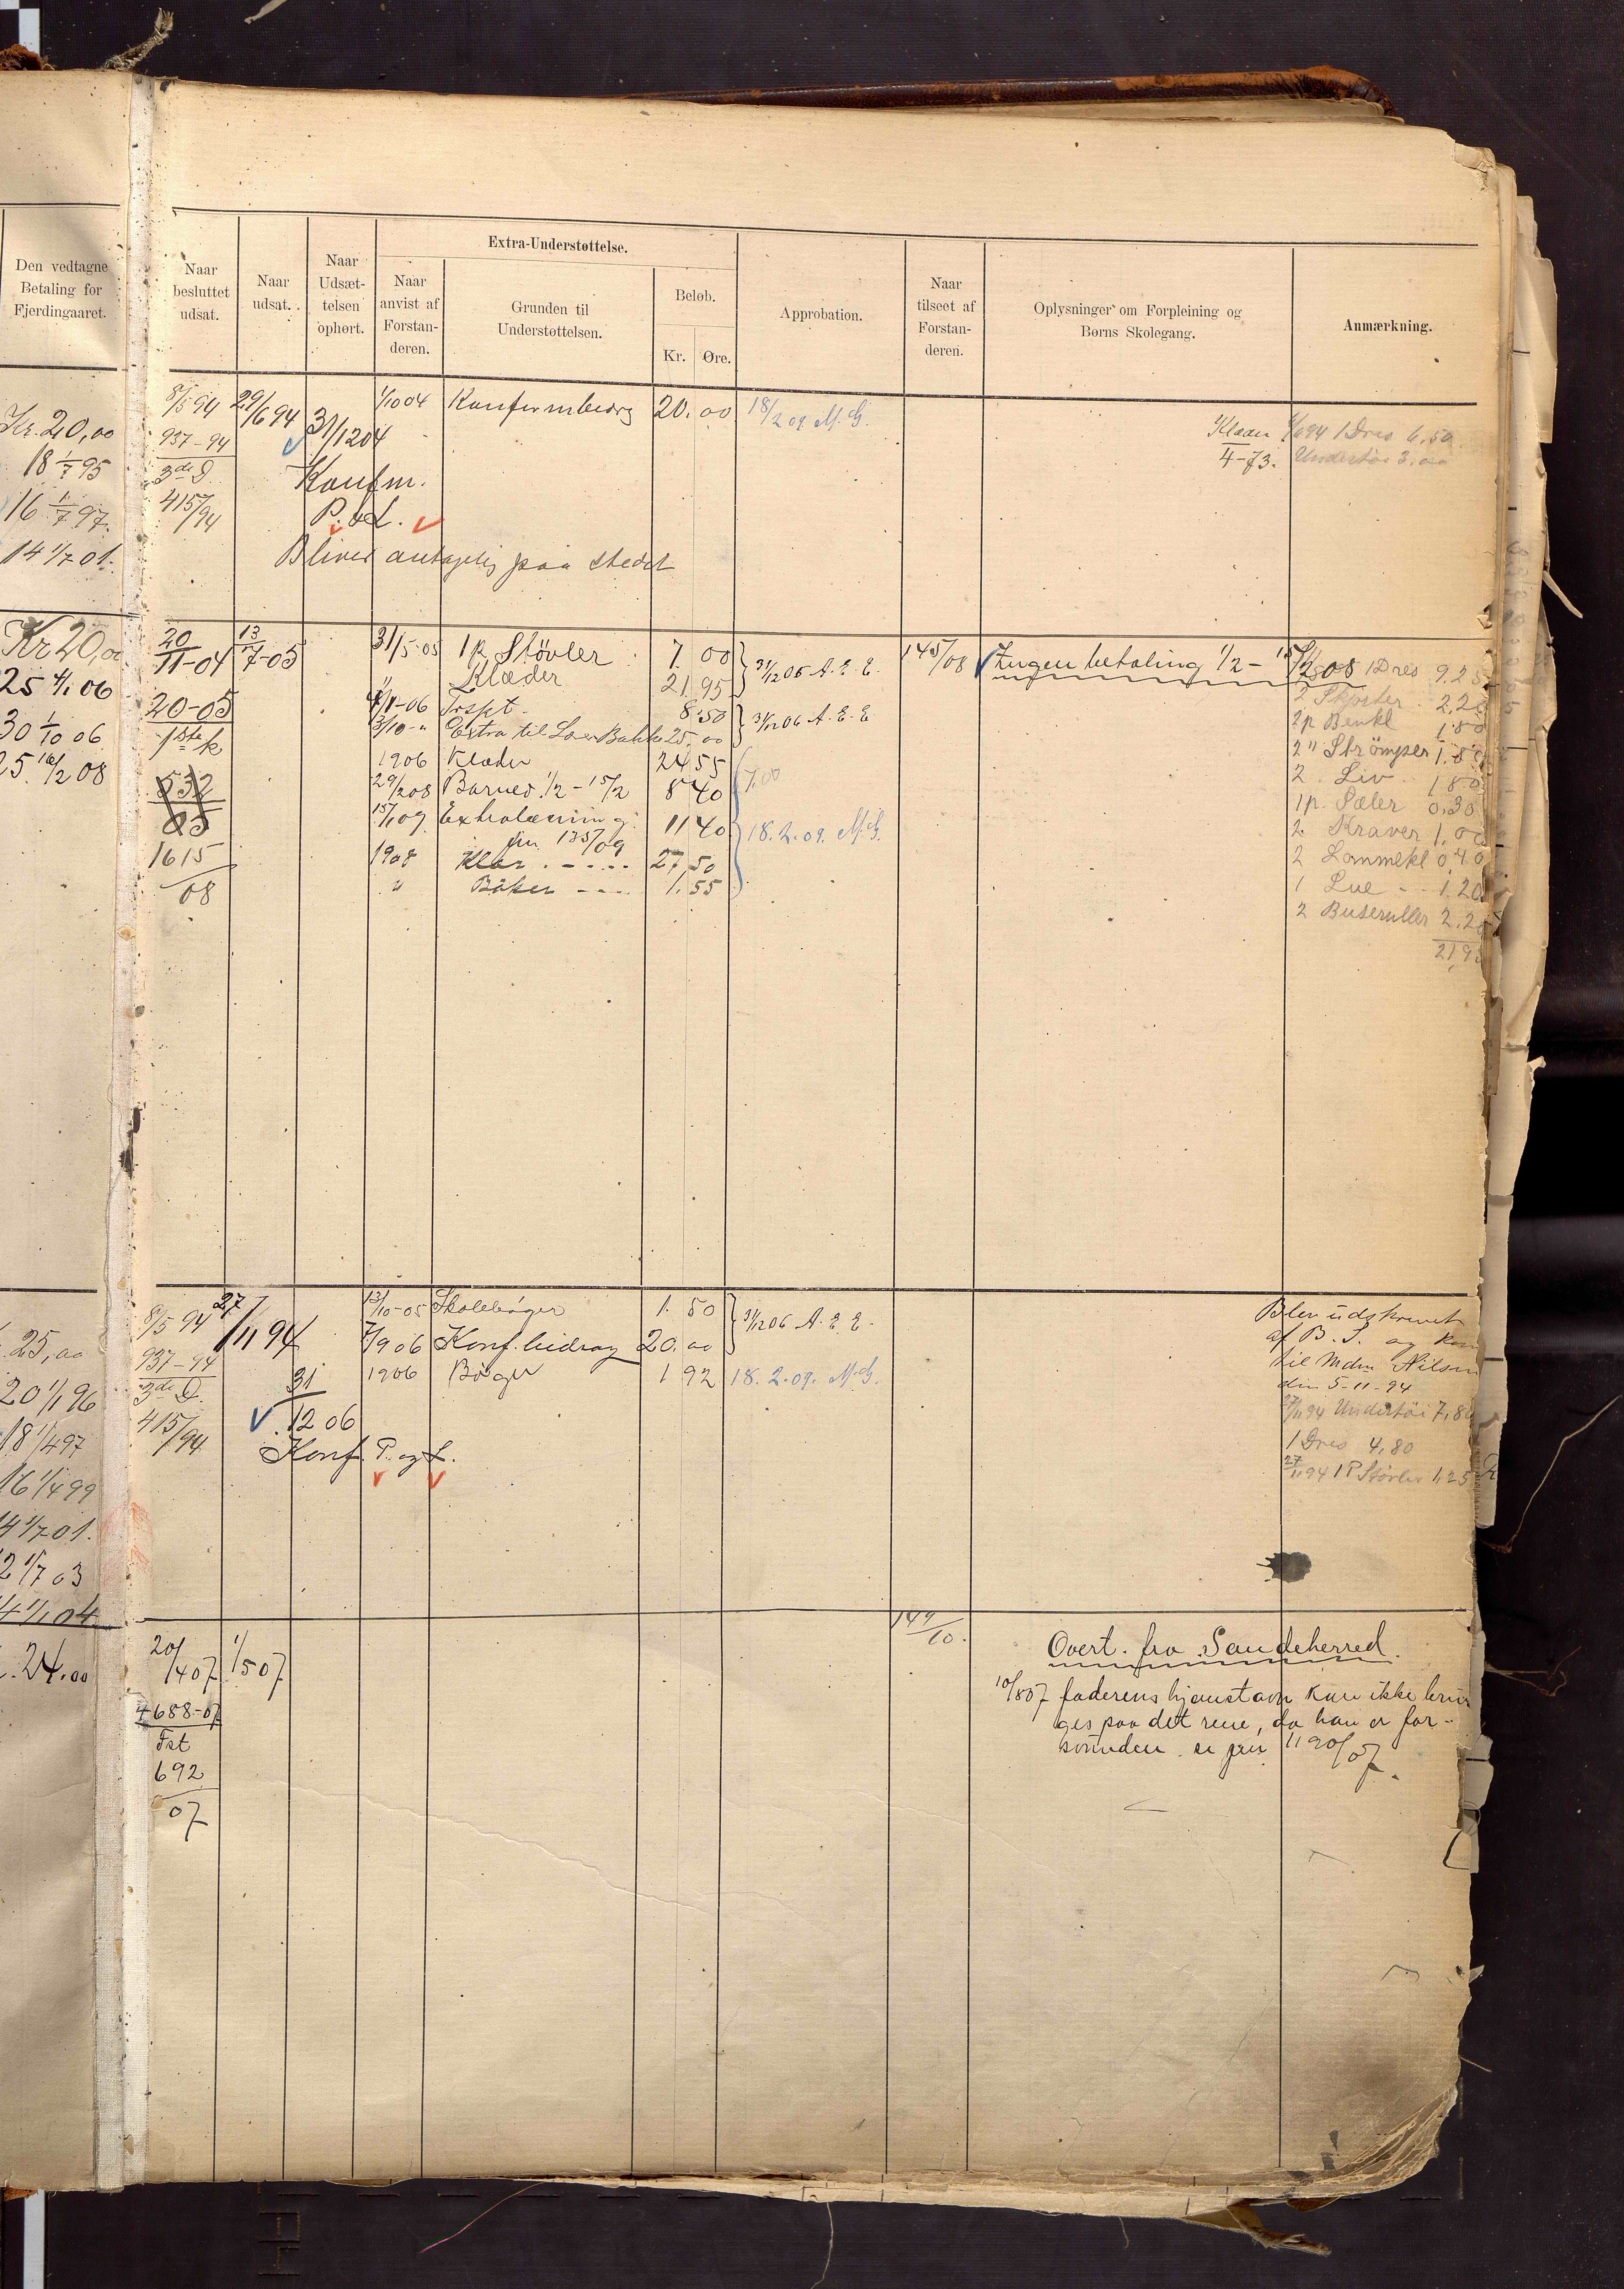 Den vedtagne
Betaling for
Fjerdingaaret.
Kr. 20,00
18 1/7 95
16 1/7 97.
14 1/7 01.
Kr 20,00
25 4/1 06
30 1/10 06
25. 16/2 08
25,00
20 1/1 96
18 1/4 97
16 1/4 99
14 1/7 01.
12 1/7 03
14 1/1 04
24.00
Naar
besluttet
udsat.
Naar
udsat.
Naar
Udsæt-
telsen
ophørt.
Extra-Understøttelse.
Naar
anvist af
Forstan-
deren.
Grunden til
Understøttelsen.
Beløb.
Kr. Øre.
Approbation.
Naar
tilseet af
Forstan-
deren.
Oplysninger om Forpleining og
Børns Skolegang.
Anmærkning.
8/5 94 29/6 94 1/10 04 Konfirmbidrg 20.00 18/2 09 M.G.
937-94 31/12 04
3de D. Konfm.
415/94 P. og L.
Bliver antagelig paa stedet
Klæder 4/6 94 1 Dres 6,50
4-73. Undertøi 3,00
20/11-04 13/7-05 31/5-05 1 p. Støvler 7.00 31/12 05 A. E. E. 145/08 Ingen betaling 1/2 - 15/2 08
Klæder 21.95
20-05 Trspt. 8.50 31/12 06 A. E. E
1ste k 3/10 - " Extra til Lars Bakke 25,00
1906 Klæder 24 55 7.00
532/05 29/2 08 Barned. 1/2 - 15/2 8 40
15/1 09 Extralæsning 11 40 18. 2. 09. M.G.
jnr. 135/09
1615/08 1908 Klær 27,50
" Bøker 1.55
1 Dres 9.25
2 Skjorter 2.20
2 p Benkl 1.80
2 " Strömper 1.80
2 Liv 1 80
1 p. Sæler 0.30
2 Kraver 1.00
2 Lommekl 0,40
1 Lue 1.20
2 Buseruller 2.20
21,95
8/5 94 27/11 94 13/10-05 Skolebøger 1.50 31/12 06 A. E. E.
937-94 7/9 06 Konf. bidrag 20.00
3de D. 31/12 06 1906 Bøger 1 92 18. 2. 09. M.G.
415/94 Konf. P. og L.
Blev udskrevet
af B. S. og kom
til Mdm Nilsen
din 5-11-94
27/11 94 Undertøi 7,80
1 Dres 4,80
27/11 94 1 P Støvler 1,25
20/4 07 1/5 07 149/10. Overt. fra Sandeherred.
4688-07
Fst
692/07
10/8 07 faderens hjemstavn kan ikke brin-
ges paa det rene, da han er for-
svunden. se jnr. 1190/07.